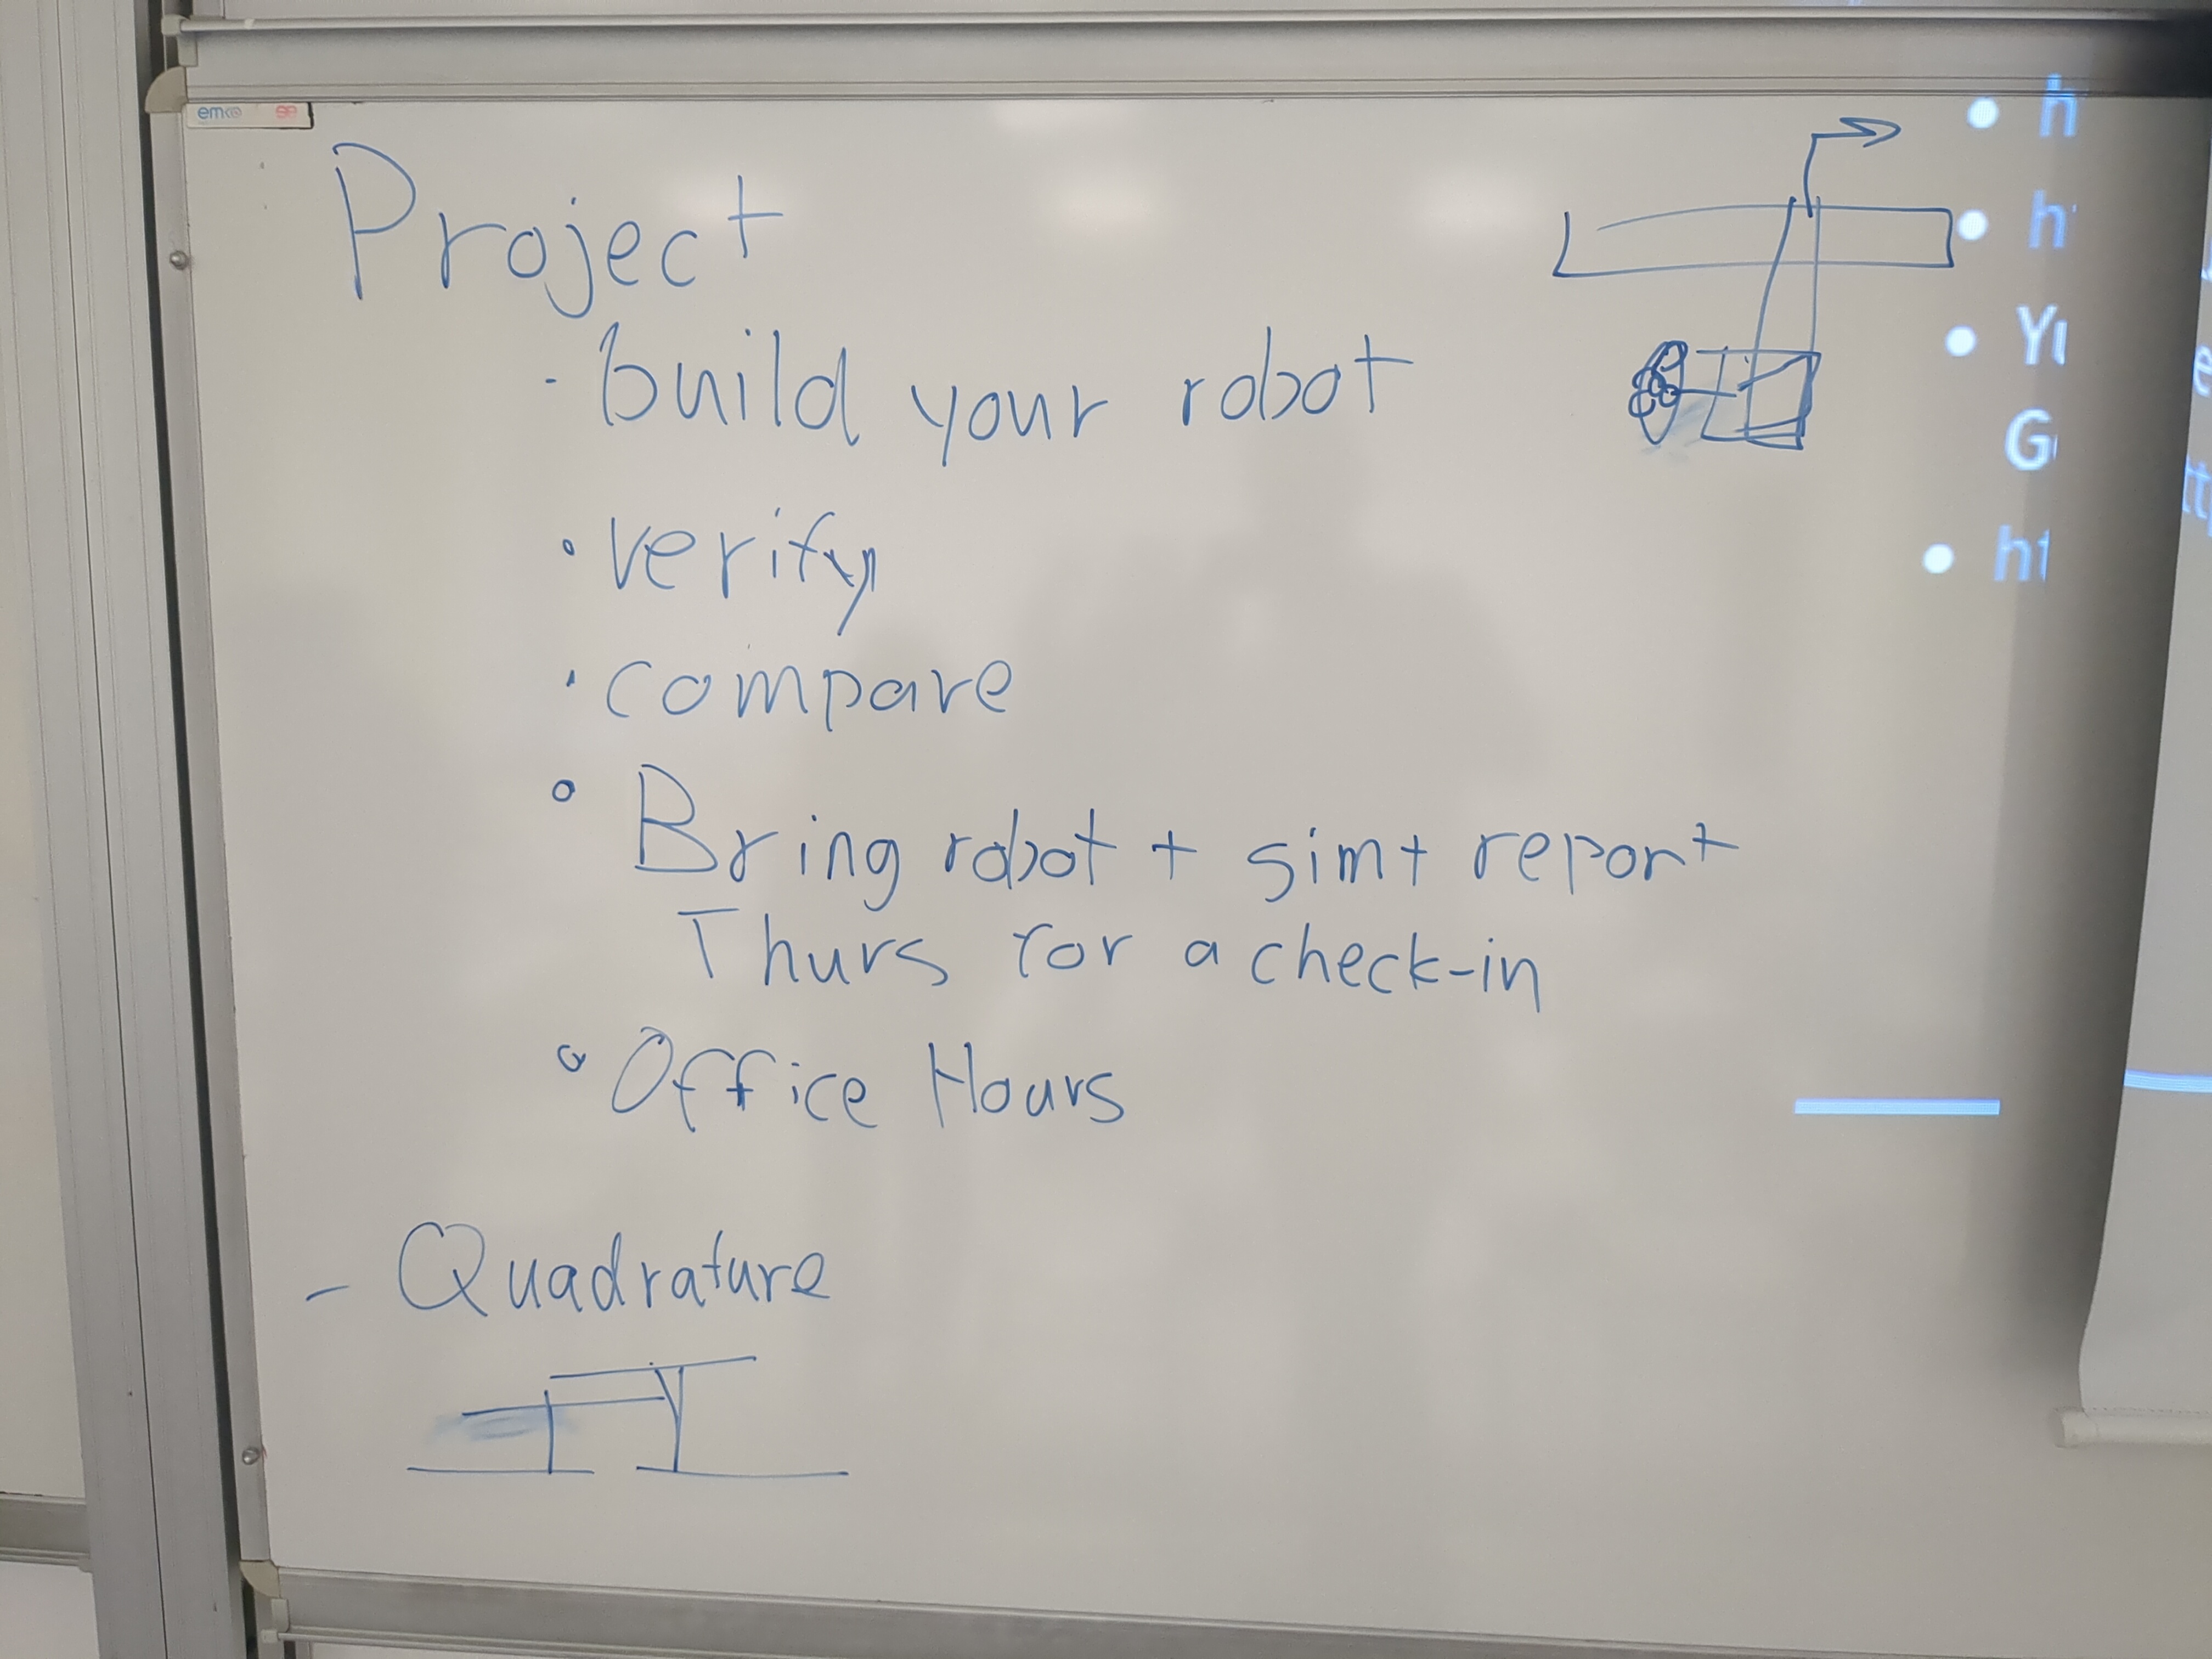 Project
· build your robot
· verify
· compare
· Bring robot + sim + report
Thurs for a check-in
· Office Hours
- Quadrature